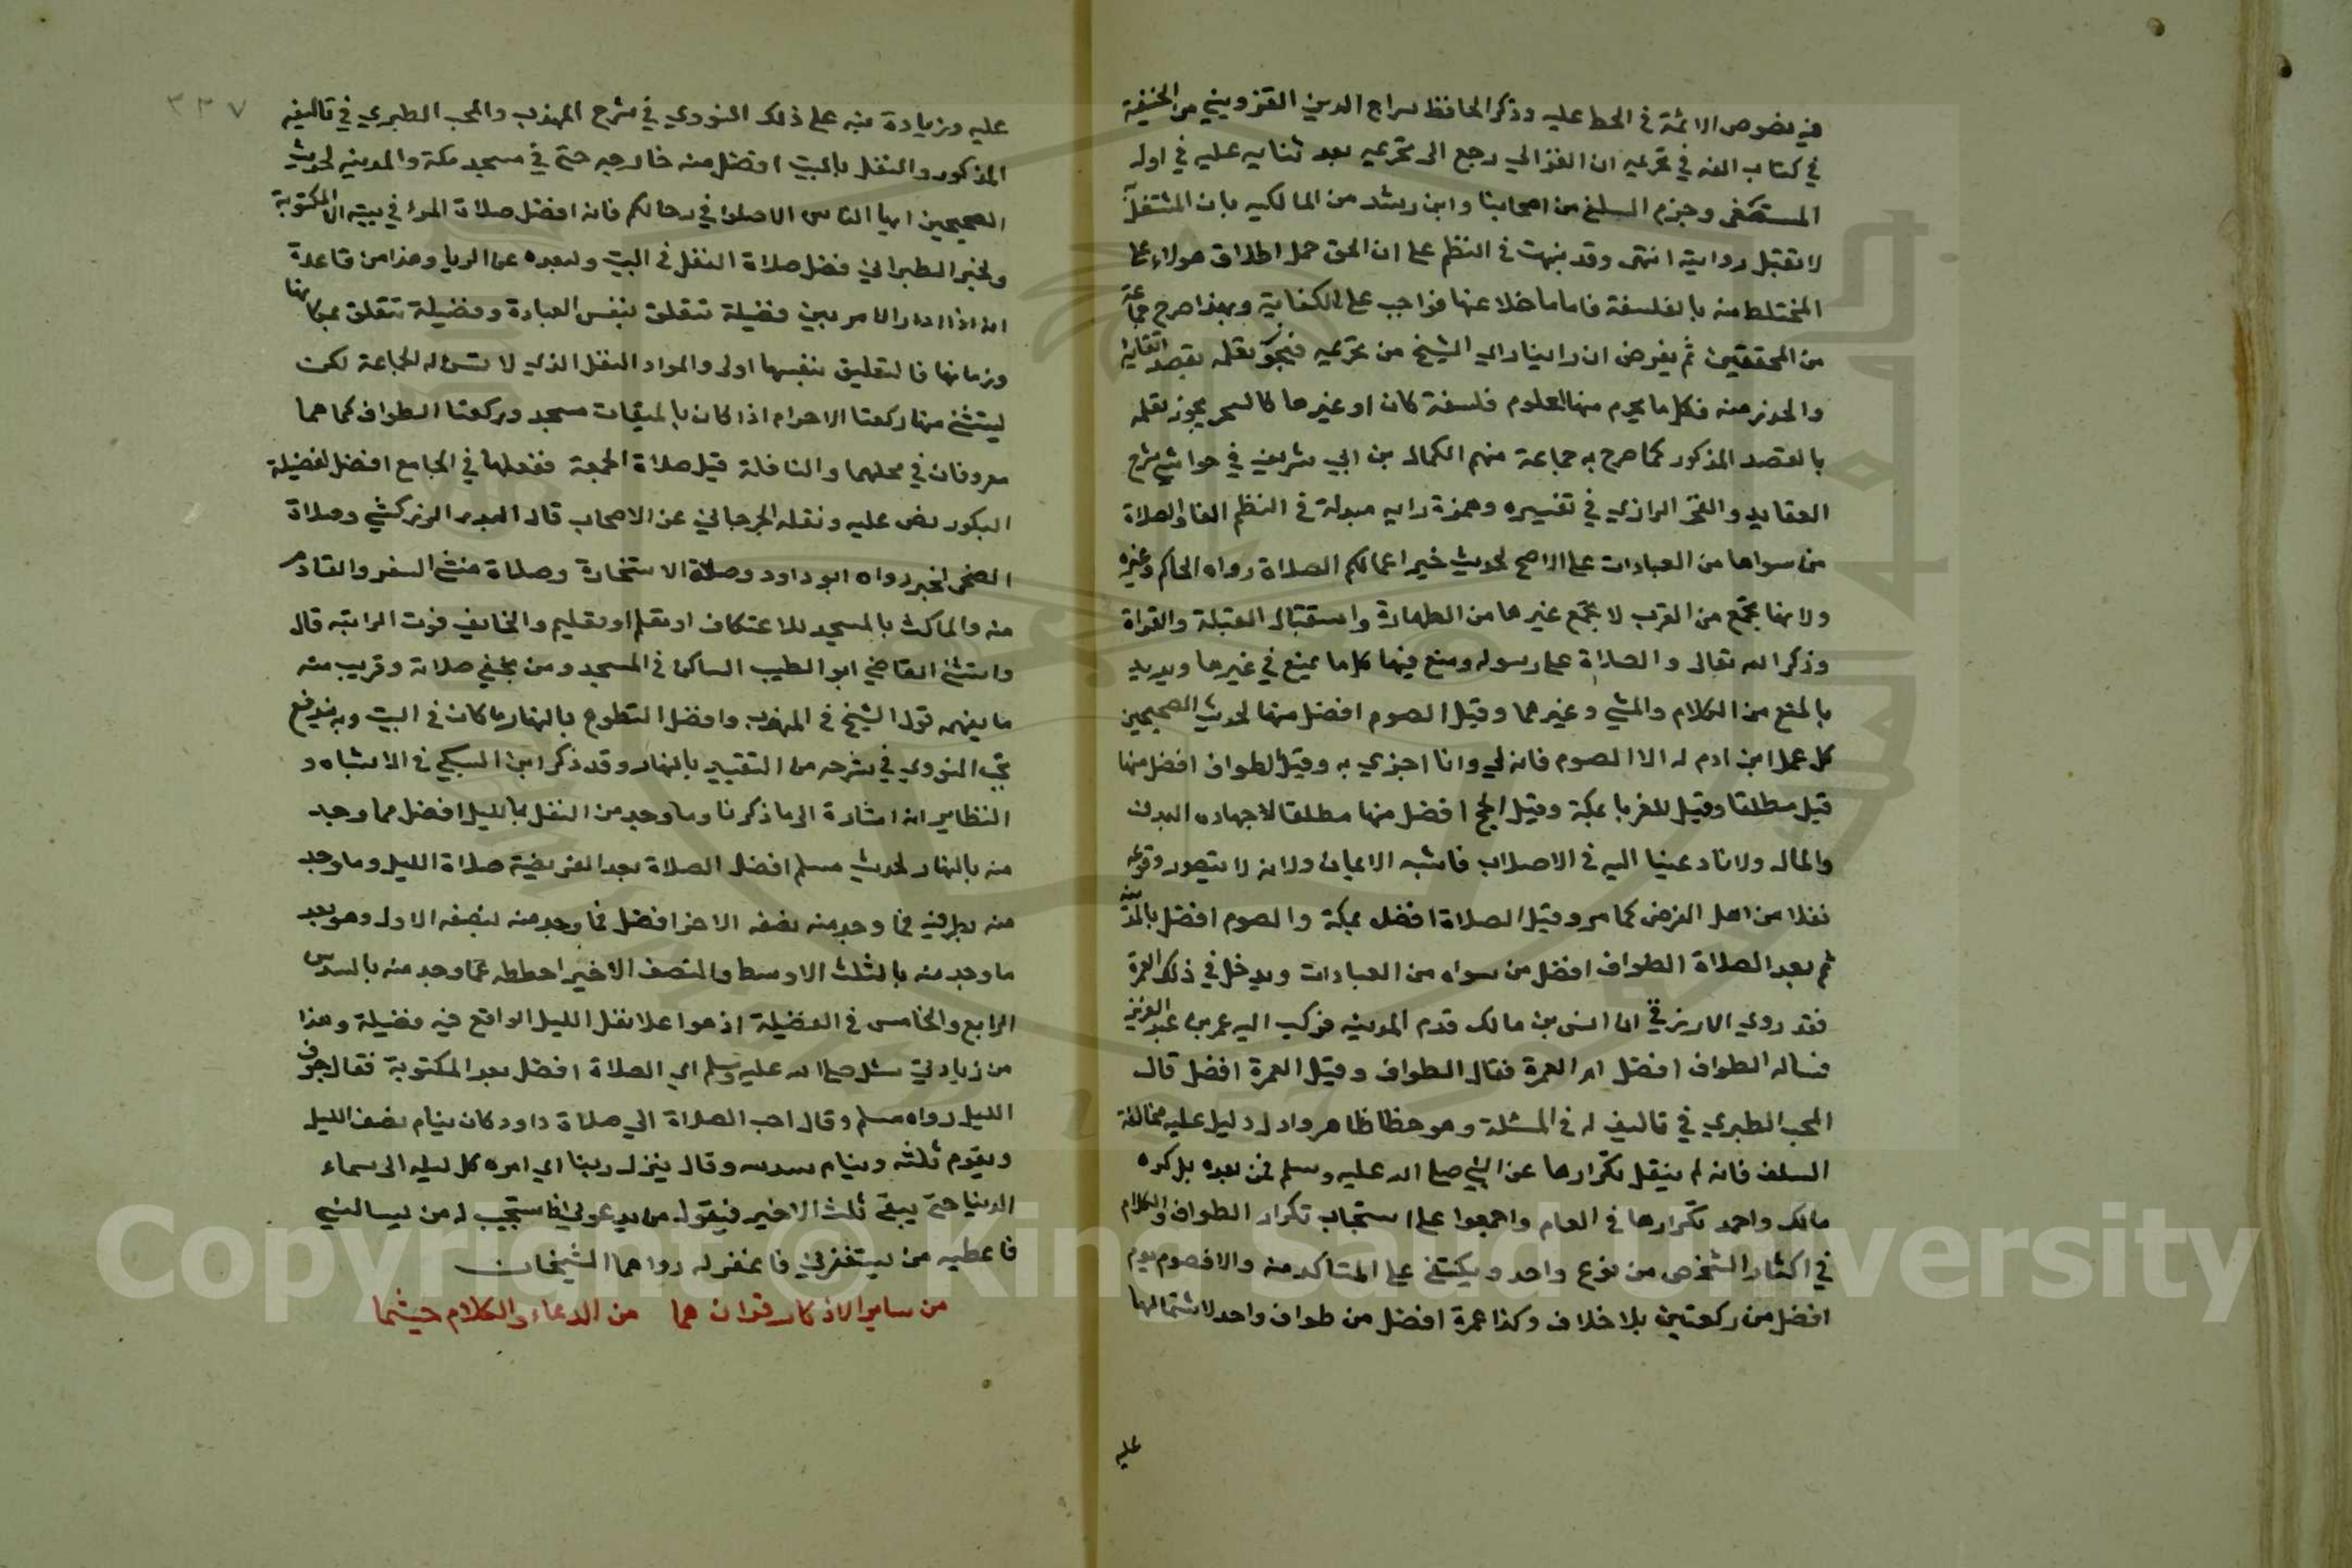 فيه نصوص الائمة في الحط عليه وذكر الحافظ سراج الدين القزويني من الحنفية
في كتاب الفه في تحريمه ان الغزالي رجع الى تحريمه بعد ثنايه عليه في اول
المستصفى وجزم السلفي من اصحابنا وابن رشد من المالكيه بان المشتغل به
لا تقبل روايته انتهى وقد نبهت في النظم على ان الحق حمل اطلاق هولاء على
المختلط منه بالفلسفة فاما ما خلا عنها فواجب على الكفاية وبهذا صرح جماعة
من المحققين ثم بفرض ان راينا راي الشيخ من تحريمه فيجوز تعلمه بقصد اتقايه
والحذر منه فكل ما يحرم من العلوم فلسفة كان او غيرها كالسحر يجوز تعلمه
بالقصد المذكور كما صرح به جماعة منهم الكمال بن ابي شريف في حواشي شرح
العقايد والفخر الرازي في تفسيره وهمزة رايه مبدلة في النظم الفا والصلاة
من سواها من العبادات على الاصح لحديث خير اعمالكم الصلاة رواه الحاكم وغيره
ولانها تجمع من القرب لا تجمع غيرها من الطهارة واستقبال القبلة والقراة
وذكر الله تعالى والصلاة على رسوله ومنع فيها كل ما يمنع في غيرها ويزيد
بالمنع من الكلام والمشي وغيرهما وقيل الصوم افضل منها لحديث الصحيحين
كل عمل ابن ادم له الا الصوم فانه لي وانا اجزي به وقيل الطواف افضل منها
قيل مطلقا وقيل للغربا بمكة وقيل الحج افضل منها مطلقا لاجهاده البدن
والمال ولانا دعينا اليه في الاصلاب فاشبه الايمان ولانه لا يتصور وقوعه
نفلا من اهل الفرض كما مر وقيل الصلاة افضل بمكة والصوم افضل بالمدينة
ثم بعد الصلاة الطواف افضل من سواه من العبادات ويدخل في ذلك العمرة
فقد روى الازرقي ان انس بن مالك قدم المدينه فركب اليه عمر بن عبد العزيز
فساله الطواف افضل ام العمرة فقال الطواف وقيل العمرة افضل قال
المحب الطبري في تاليف له في المسئلة وهو خطا ظاهر وادل دليل عليه مخالفة
السلف فانه لم ينقل تكرارها عن النبي صلى الله عليه وسلم فمن بعده بل كره
مالك واحمد تكرارها في العام واجمعوا على استحباب تكرار الطواف والكلام
في اكثار الشخص من نوع واحد ويكتفي على المتاكد منه والا فصوم يوم
افضل من ركعتين بلا خلاف وكذا عمرة افضل من طواف واحد لاشتمالها
عليه
٣٣٧
عليه وزيادة نبه على ذلك النووي في شرح المهذب والمحب الطبري في تاليفه
المذكور والنفل بالبيت افضل منه خارجه حتى في مسجد مكة والمدينه لحديث
الصحيحين ايها الناس الا صلوا في رحالكم فان افضل صلاة المرء في بيته الا المكتوبة
ولخبر الطبراني فضل صلاة النفل في البيت ولبعده عن الريا وهذا من قاعدة
انه اذا دار الامر بين فضيلة تتعلق بنفس العبادة وفضيلة تتعلق بمكانها
وزمانها فالتعليق بنفسها اولى والمراد النفل الذي لا تسن له الجماعة لكن
يستثنى منها ركعتا الاحرام اذا كان بالميقات مسجد وركعتا الطواف كما هما
معروفان في محلهما والنافلة قبل صلاة الجمعة ففعلها في الجامع افضل لفضيلة
البكور نص عليه ونقله الجرجاني عن الاصحاب قال البدر الزركشي وصلاة
الضحى لخبر رواه ابو داود وصلاة الاستخارة وصلاة منشئ السفر والقادم
منه والماكث بالمسجد للاعتكاف او تعلم او تعليم والخايف فوت الراتبه قال
واستثنى القاضي ابو الطيب الساكن في المسجد ومن يخفي صلاته وقريب منه
ما يفهمه قول الشيخ في المهذب وافضل التطوع بالنهار ما كان في البيت وبه يندفع
تعجب النووي في شرحه من التقييد بالنهار وقد ذكر ابن السبكي في الاشباه و
النظاير انه اشارة الى ما ذكرنا وما وجد من النفل بالليل افضل مما وجد
منه بالنهار لحديث مسلم افضل الصلاة بعد الفريضة صلاة الليل وما وجد
منه بطرفيه فما وجد منه نصفه الاخر افضل فما وجد منه لنصفه الاول وهو بعد
ما وجد منه بالثلث الاوسط والنصف الاخير احططه عما وجد منه بالسدس
الرابع والخامس في الفضيلة اذ هو اعلا نفل الليل الواقع فيه فضيلة وهذا
من زيادتي سئل صلى الله عليه وسلم اي الصلاة افضل بعد المكتوبة فقال جوف
الليل رواه مسلم وقال احب الصلاة الي صلاة داود كان ينام نصف الليل
ويقوم ثلثه وينام سدسه وقال ينزل ربنا اي امره كل ليله الى سماء
الدنيا حتى يبقى ثلث الاخير فيقول من يدعوني فاستجيب له من يسالني
فاعطيه من يستغفرني فاغفر له رواهما الشيخان
من ساير الاذكار قوان هما من الدعاء والكلام حيثما
Copyright © King Saud University